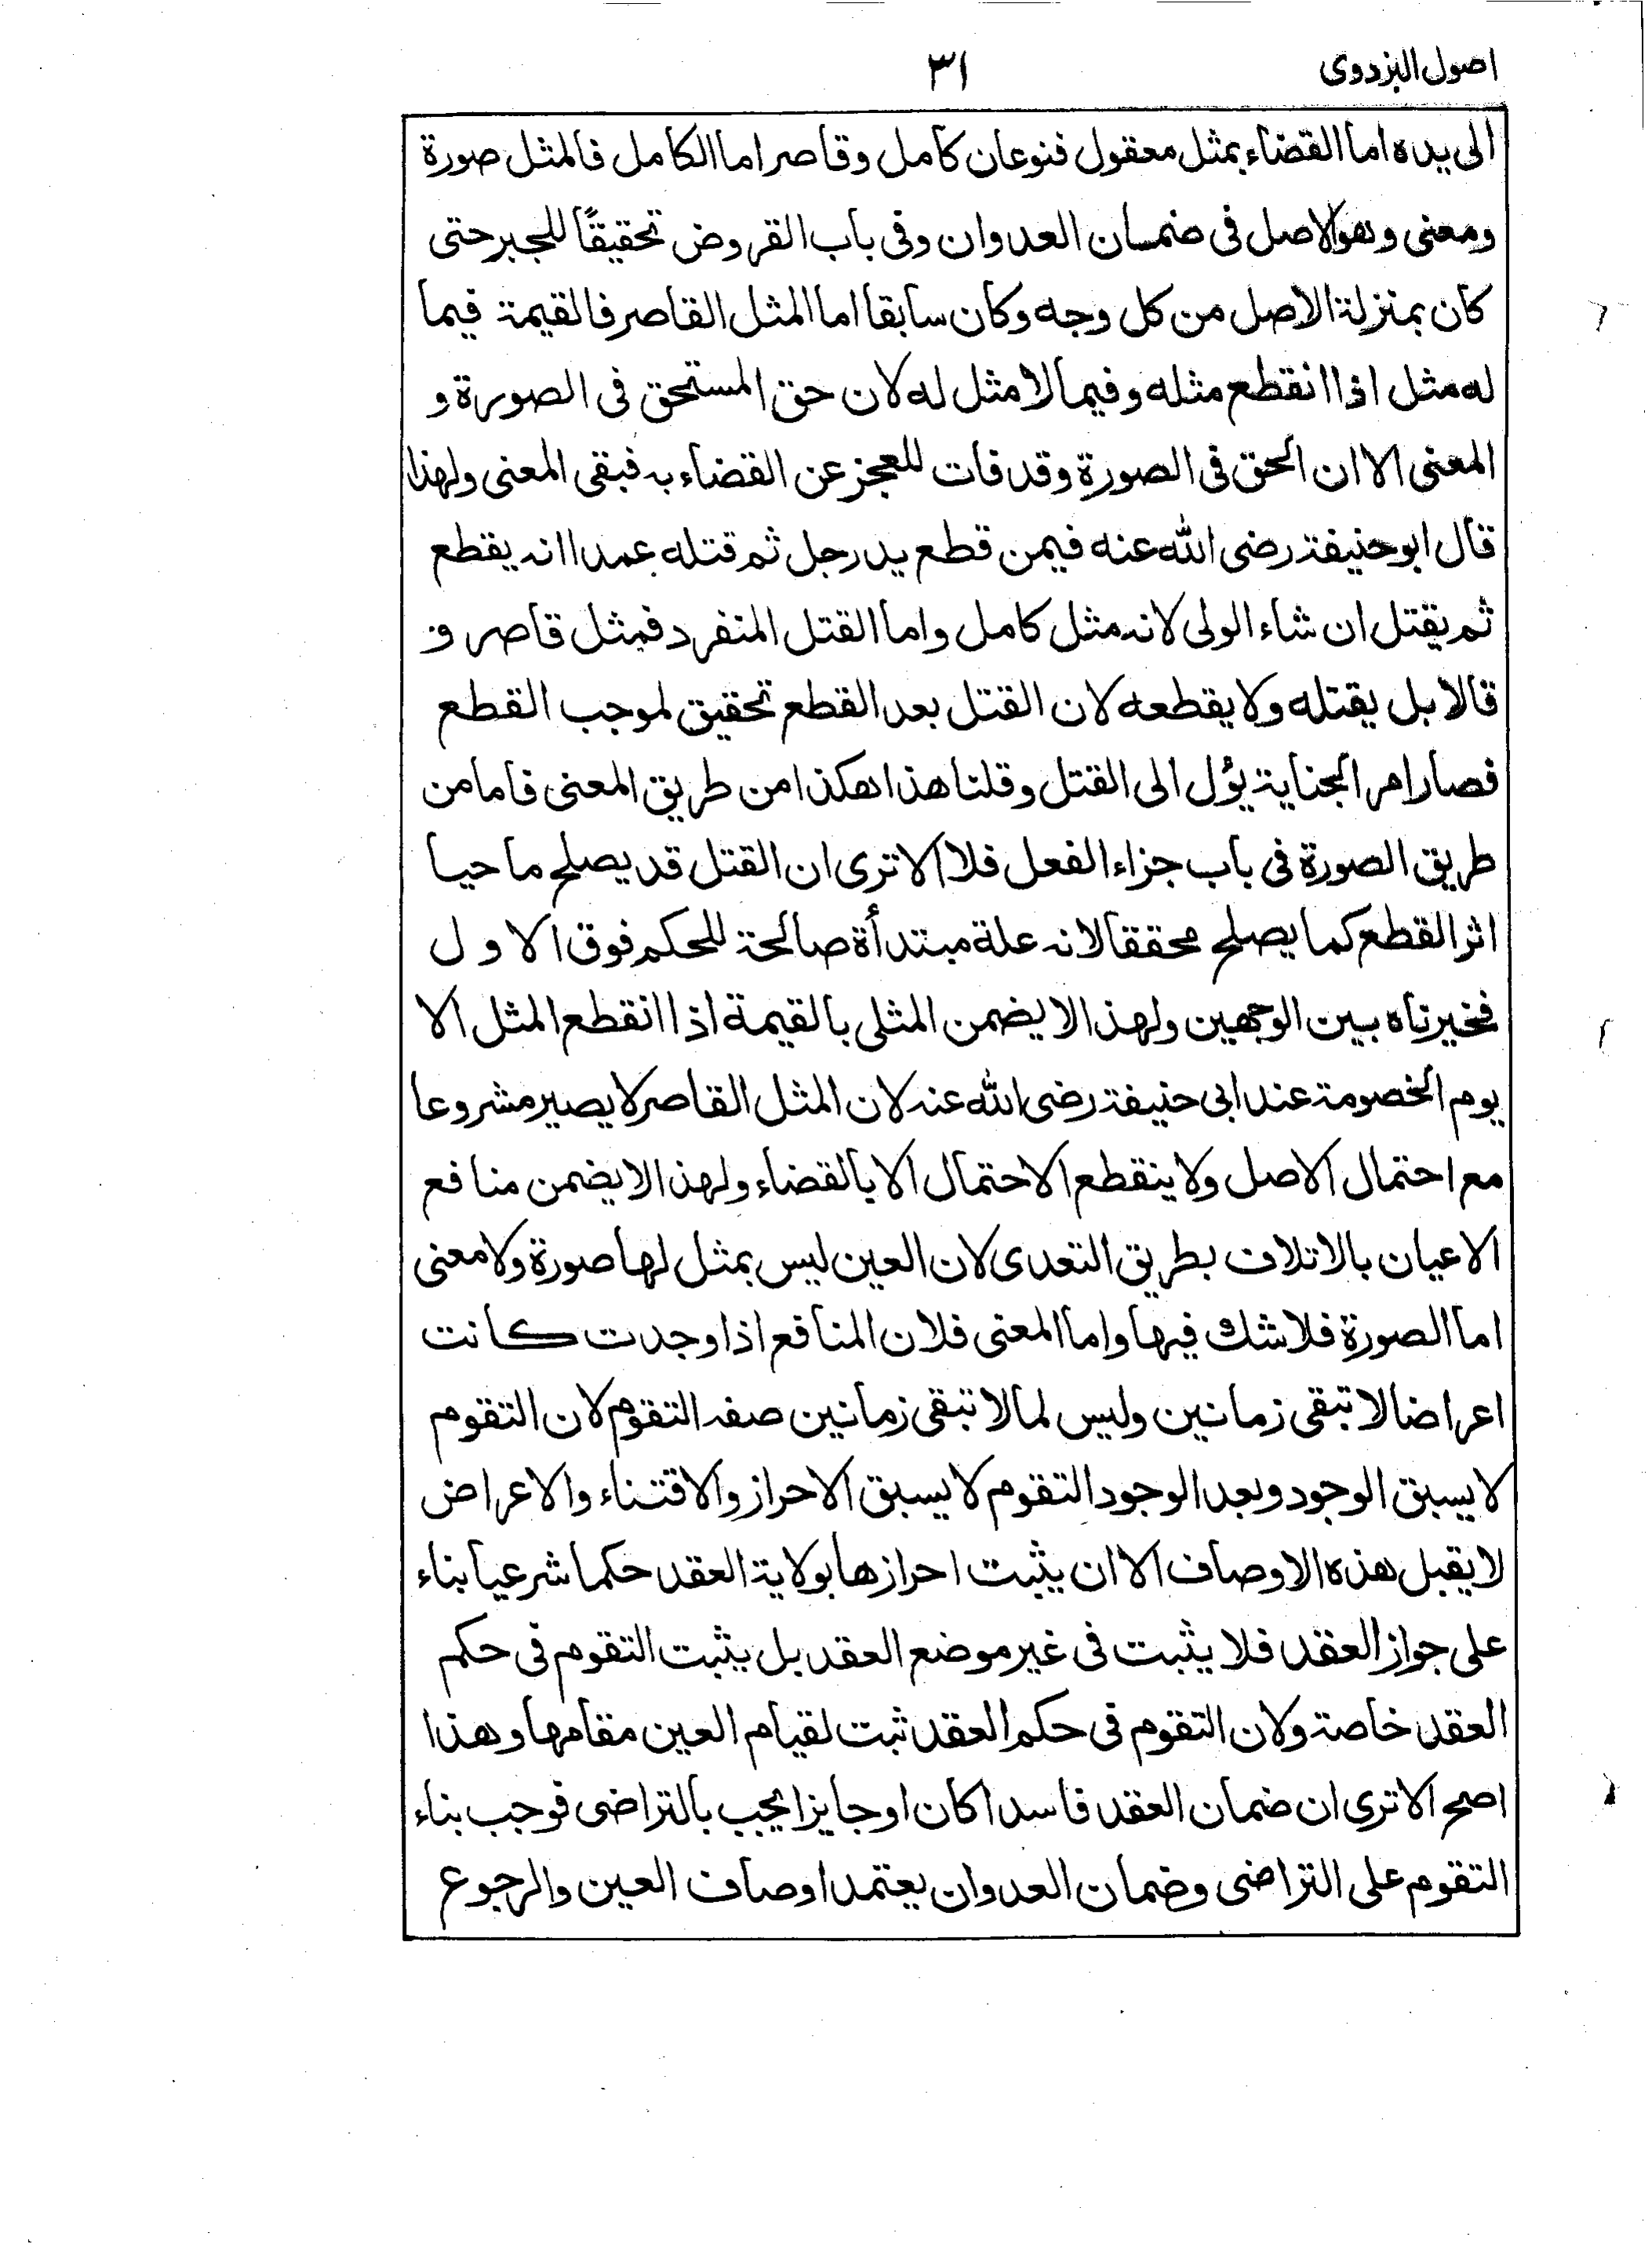 اصول البزدوى
٣١
الى يده اما القضاء بمثل معقول فنوعان كامل وقاصر اما الكامل فالمثل صورة
ومعنى وهو الاصل فى ضمان العدوان وفى باب القروض تحقيقًا للجبر حتى
كان بمنزلة الاصل من كل وجه وكان سابقا اما المثل القاصر فالقيمة فيما
له مثل اذا انقطع مثله وفيما لا مثل له لان حق المستحق فى الصورة و
المعنى الا ان الحق فى الصورة وقد فات للعجز عن القضاء به فبقى المعنى ولهذا
قال ابو حنيفة رضى الله عنه فيمن قطع يد رجل ثم قتله عمدا انه يقطع
ثم يقتل ان شاء الولى لانه مثل كامل واما القتل المنفرد فمثل قاصر و
قالا بل يقتله ولا يقطعه لان القتل بعد القطع تحقيق لموجب القطع
فصار امر الجناية يؤل الى القتل وقلنا هذا هكذا من طريق المعنى فاما من
طريق الصورة فى باب جزاء الفعل فلا الا ترى ان القتل قد يصلح ماحيا
اثر القطع كما يصلح محققا لانه علة مبتدأة صالحة للحكم فوق الاول
فخيرناه بين الوجهين ولهذا لا يضمن المثلى بالقيمة اذا انقطع المثل الا
يوم الخصومة عند ابى حنيفة رضى الله عنه لان المثل القاصر لا يصير مشروعا
مع احتمال الاصل ولا ينقطع الاحتمال الا بالقضاء ولهذا لا يضمن منافع
الاعيان بالاتلاف بطريق التعدى لان العين ليس بمثل لها صورة ولا معنى
اما الصورة فلا شك فيها واما المعنى فلان المنافع اذا وجدت كانت
اعراضا لا تبقى زمانين وليس لما لا تبقى زمانين صفه التقوم لان التقوم
لا يسبق الوجود وبعد الوجود التقوم لا يسبق الاحراز والاقتناء والاعراض
لا يقبل هذه الاوصاف الا ان يثبت احرازها بولاية العقد حكما شرعيا بناء
على جواز العقد فلا يثبت فى غير موضع العقد بل يثبت التقوم فى حكم
العقد خاصة ولان التقوم فى حكم العقد ثبت لقيام العين مقامها وهذا
اصح الا ترى ان ضمان العقد فاسدا كان او جايزا يجب بالتراضى فوجب بناء
التقوم على التراضى وضمان العدوان يعتمد اوصاف العين والرجوع